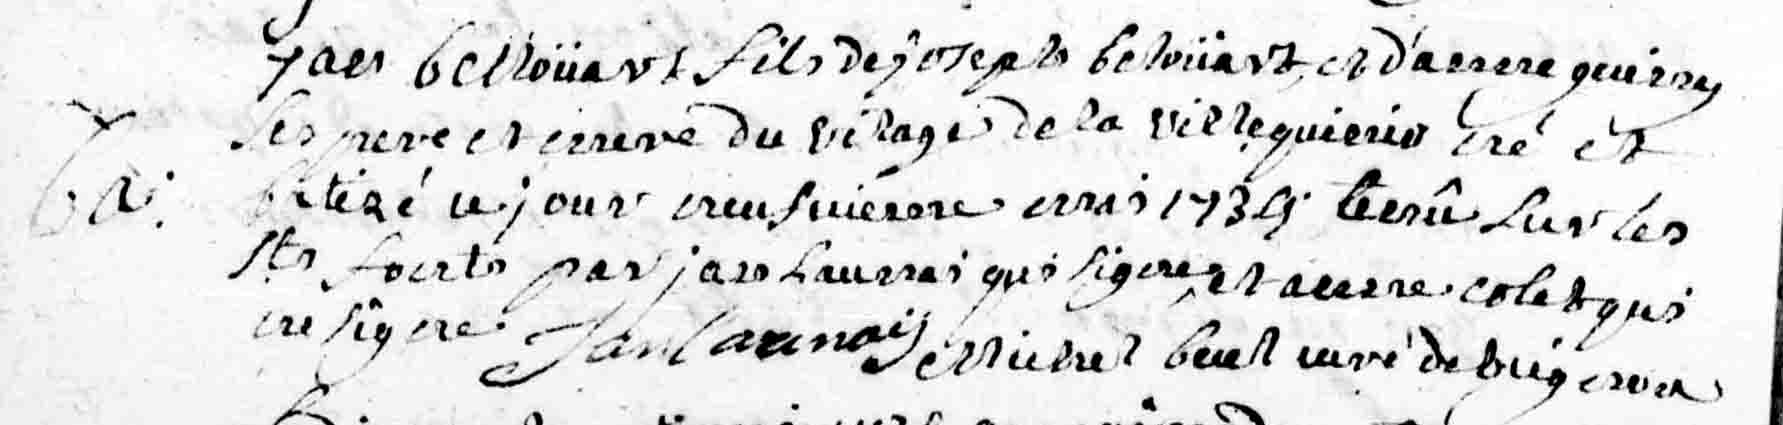 jan belloüart fils de joseph beloüart, et d'anne guirrey
ses pere et mere du vilage de la villequierio né et
bati.
batizé ce jour neusviéme mai 1735 tenû sur les
sts fonts par jan launai qui signe, et anne colet qui
ne signe Jan Launay Michel buel curé de